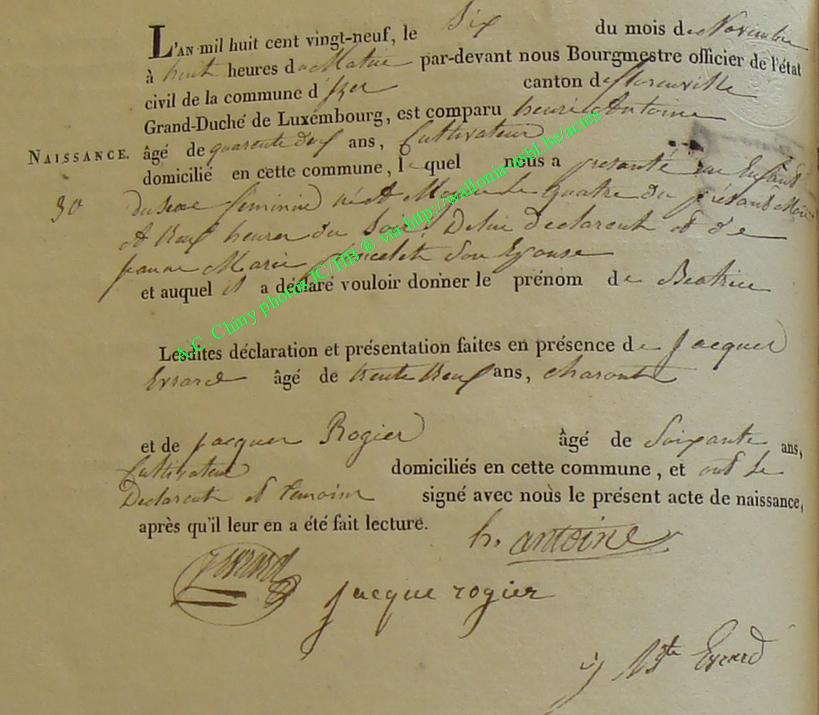 L'AN mil huit cent vingt-neuf, le Six du mois de Novembre
à huit heures du Matin par-devant nous Bourgmestre officier de l'état
civil de la commune d'Izel canton de florenville
Grand-Duché de Luxembourg, est comparu henri Antoine
NAISSANCE. âgé de quarente deux ans, Cultivateur
domicilié en cette commune, lequel nous a présenté un Enfant
30 du sexe feminin né A Moyen le quatre du présant Mois
A Neuf heures du Soir, De lui declarent et de
jeanne Marie poncelet Son Epouse
et auquel il a déclaré vouloir donner le prénom de Beatrice
Lesdites déclaration et présentation faites en présence de Jacques
Evrard âgé de trente Neuf ans, charon
et de jacques Rogier âgé de Soixante ans,
Cultivateur domiciliés en cette commune, et ont Le
Declarent et temoins signé avec nous le présent acte de naissance,
après qu'il leur en a été fait lecture.
h. antoine
jEvrard
jacque rogier
j Bte Evrard
N.C. Chiny photos IC/HB ® via http://wallonia-mbl.be/actes